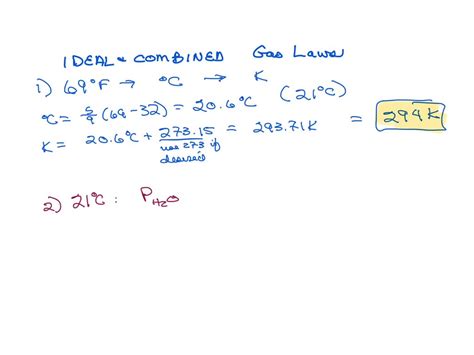 IDEAL & COMBINED Gas Laws
1) 69°F → °C → K
(21°C)
°C = 5/9 (69-32) = 20.6°C
K = 20.6°C + 273.15 = 293.71K = 294K
use 273 if
desired
2) 21°C : P_H2O